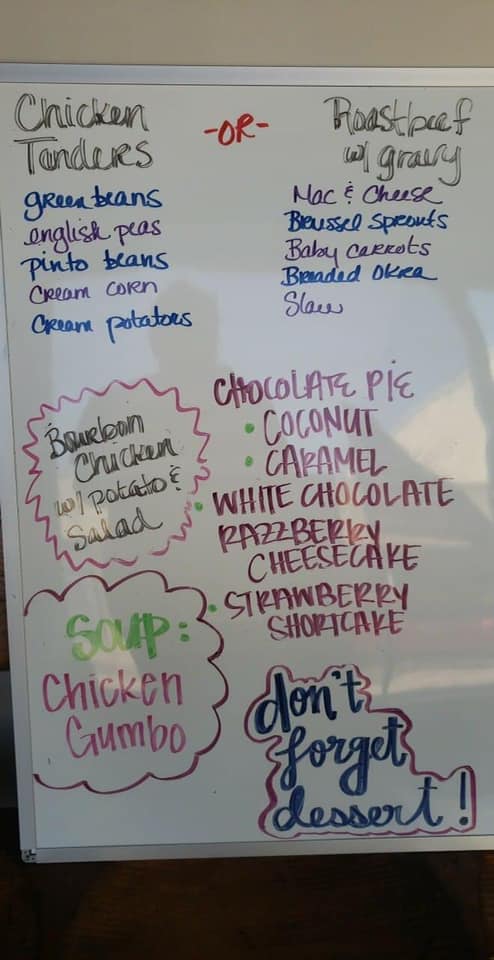 Chicken Tanders
-OR-
Roastbeef w/ gravy
green beans
english peas
pinto beans
Cream corn
Cream potatoes
Mac & Cheese
Brussel Sprouts
Baby Carrots
Breaded Okra
Slaw
Bourbon
Chicken
w/ potato &
Salad
CHOCOLATE PIE
• COCONUT
• CARAMEL
• WHITE CHOCOLATE
RAZZBERRY
CHEESECAKE
• STRAWBERRY
SHORTCAKE
SOUP:
Chicken
Gumbo
don't
forget
dessert!